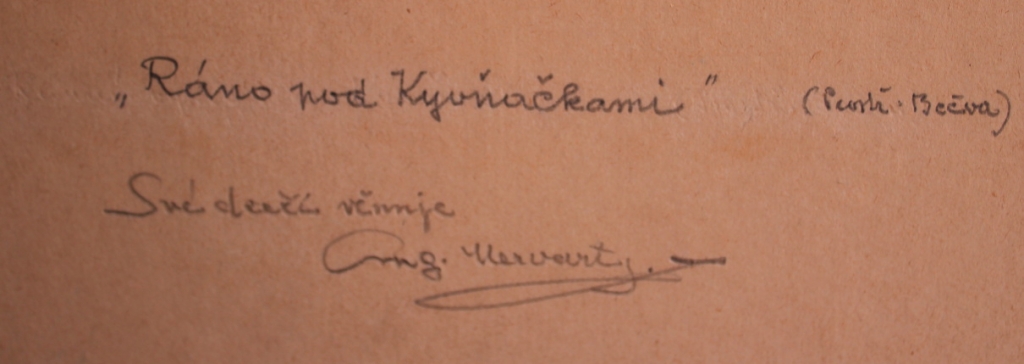 „Ráno pod Kyvňačkami" (Prostř. Bečva)
Své dceři věnuje
Aug. Mervart